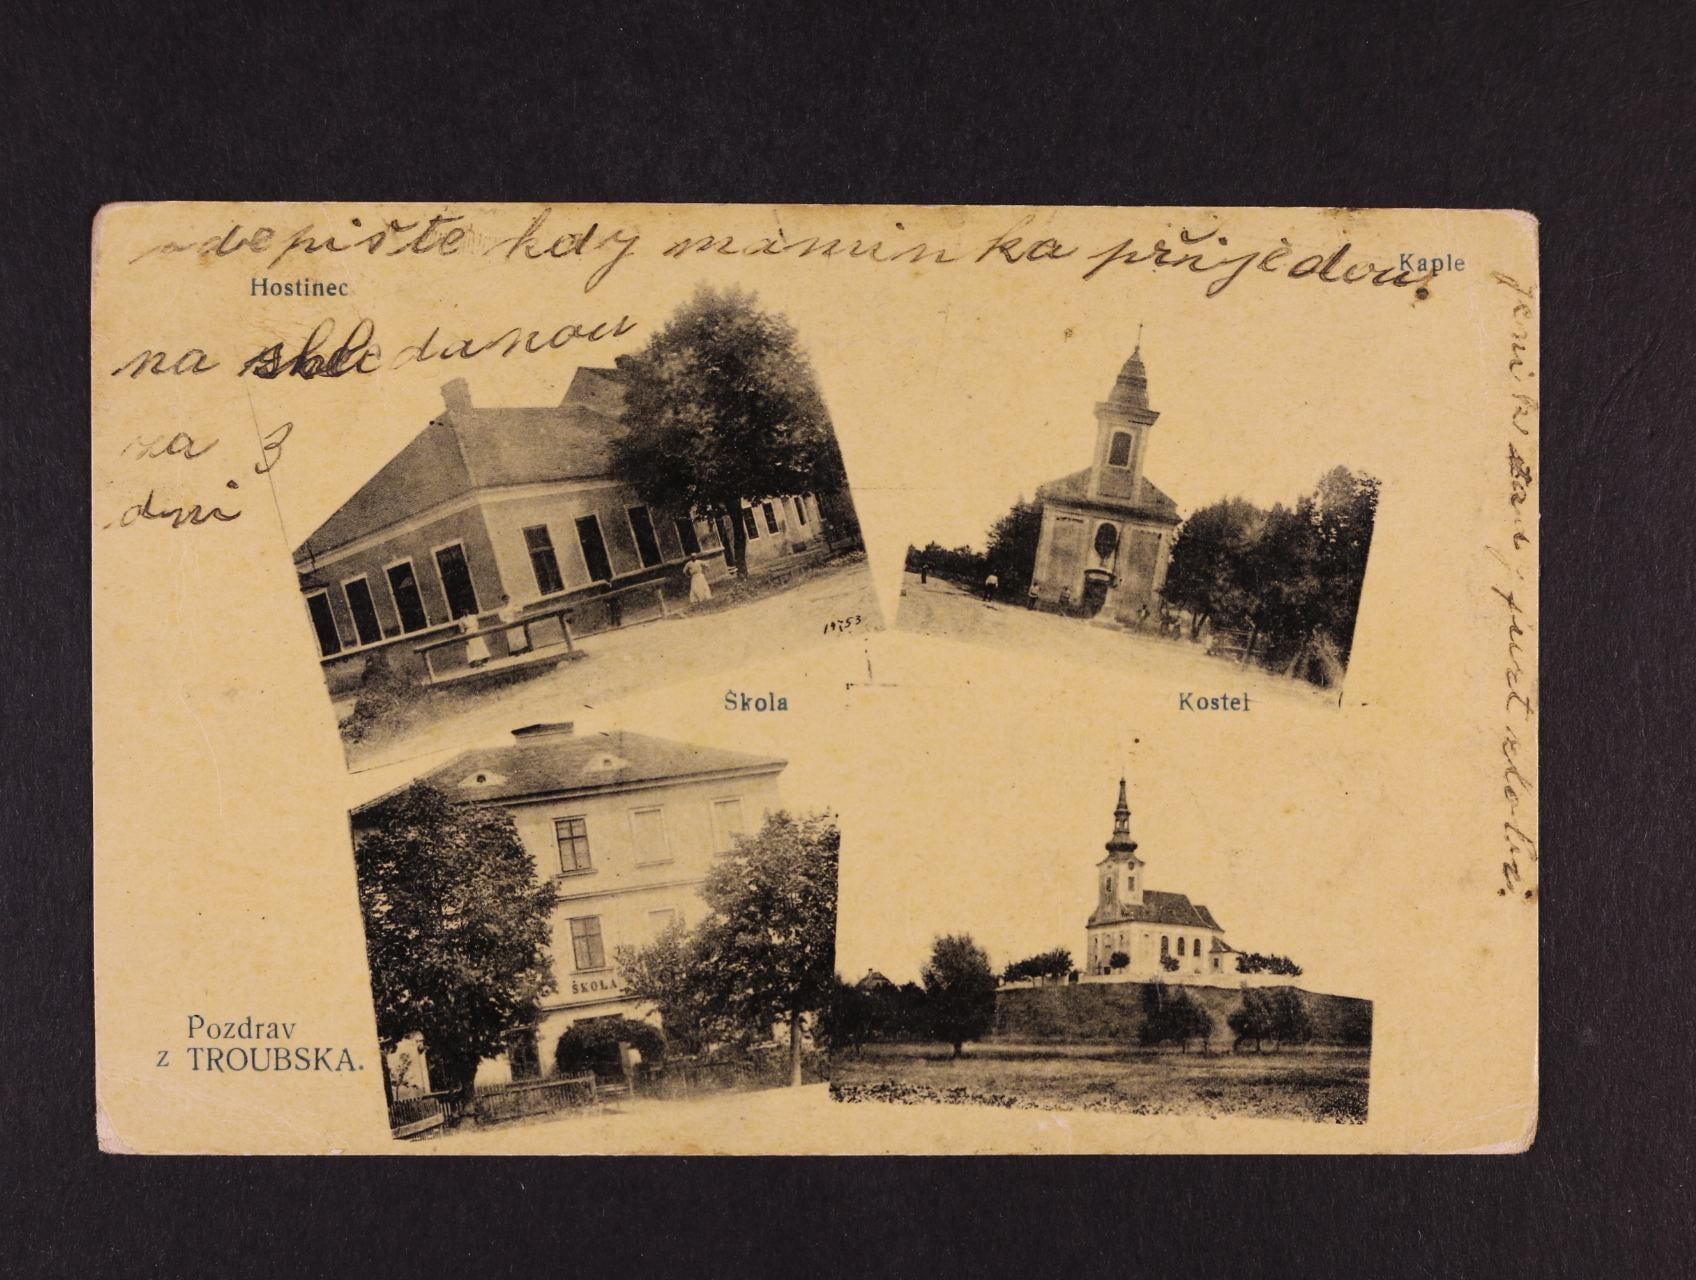 odepište kdy maminka přijedou.
Hostinec
Kaple
na shledanou
za 3
dni
19753
Škola
Kostel
ŠKOLA
Pozdrav
z TROUBSKA.
Jeník furt zlobi.